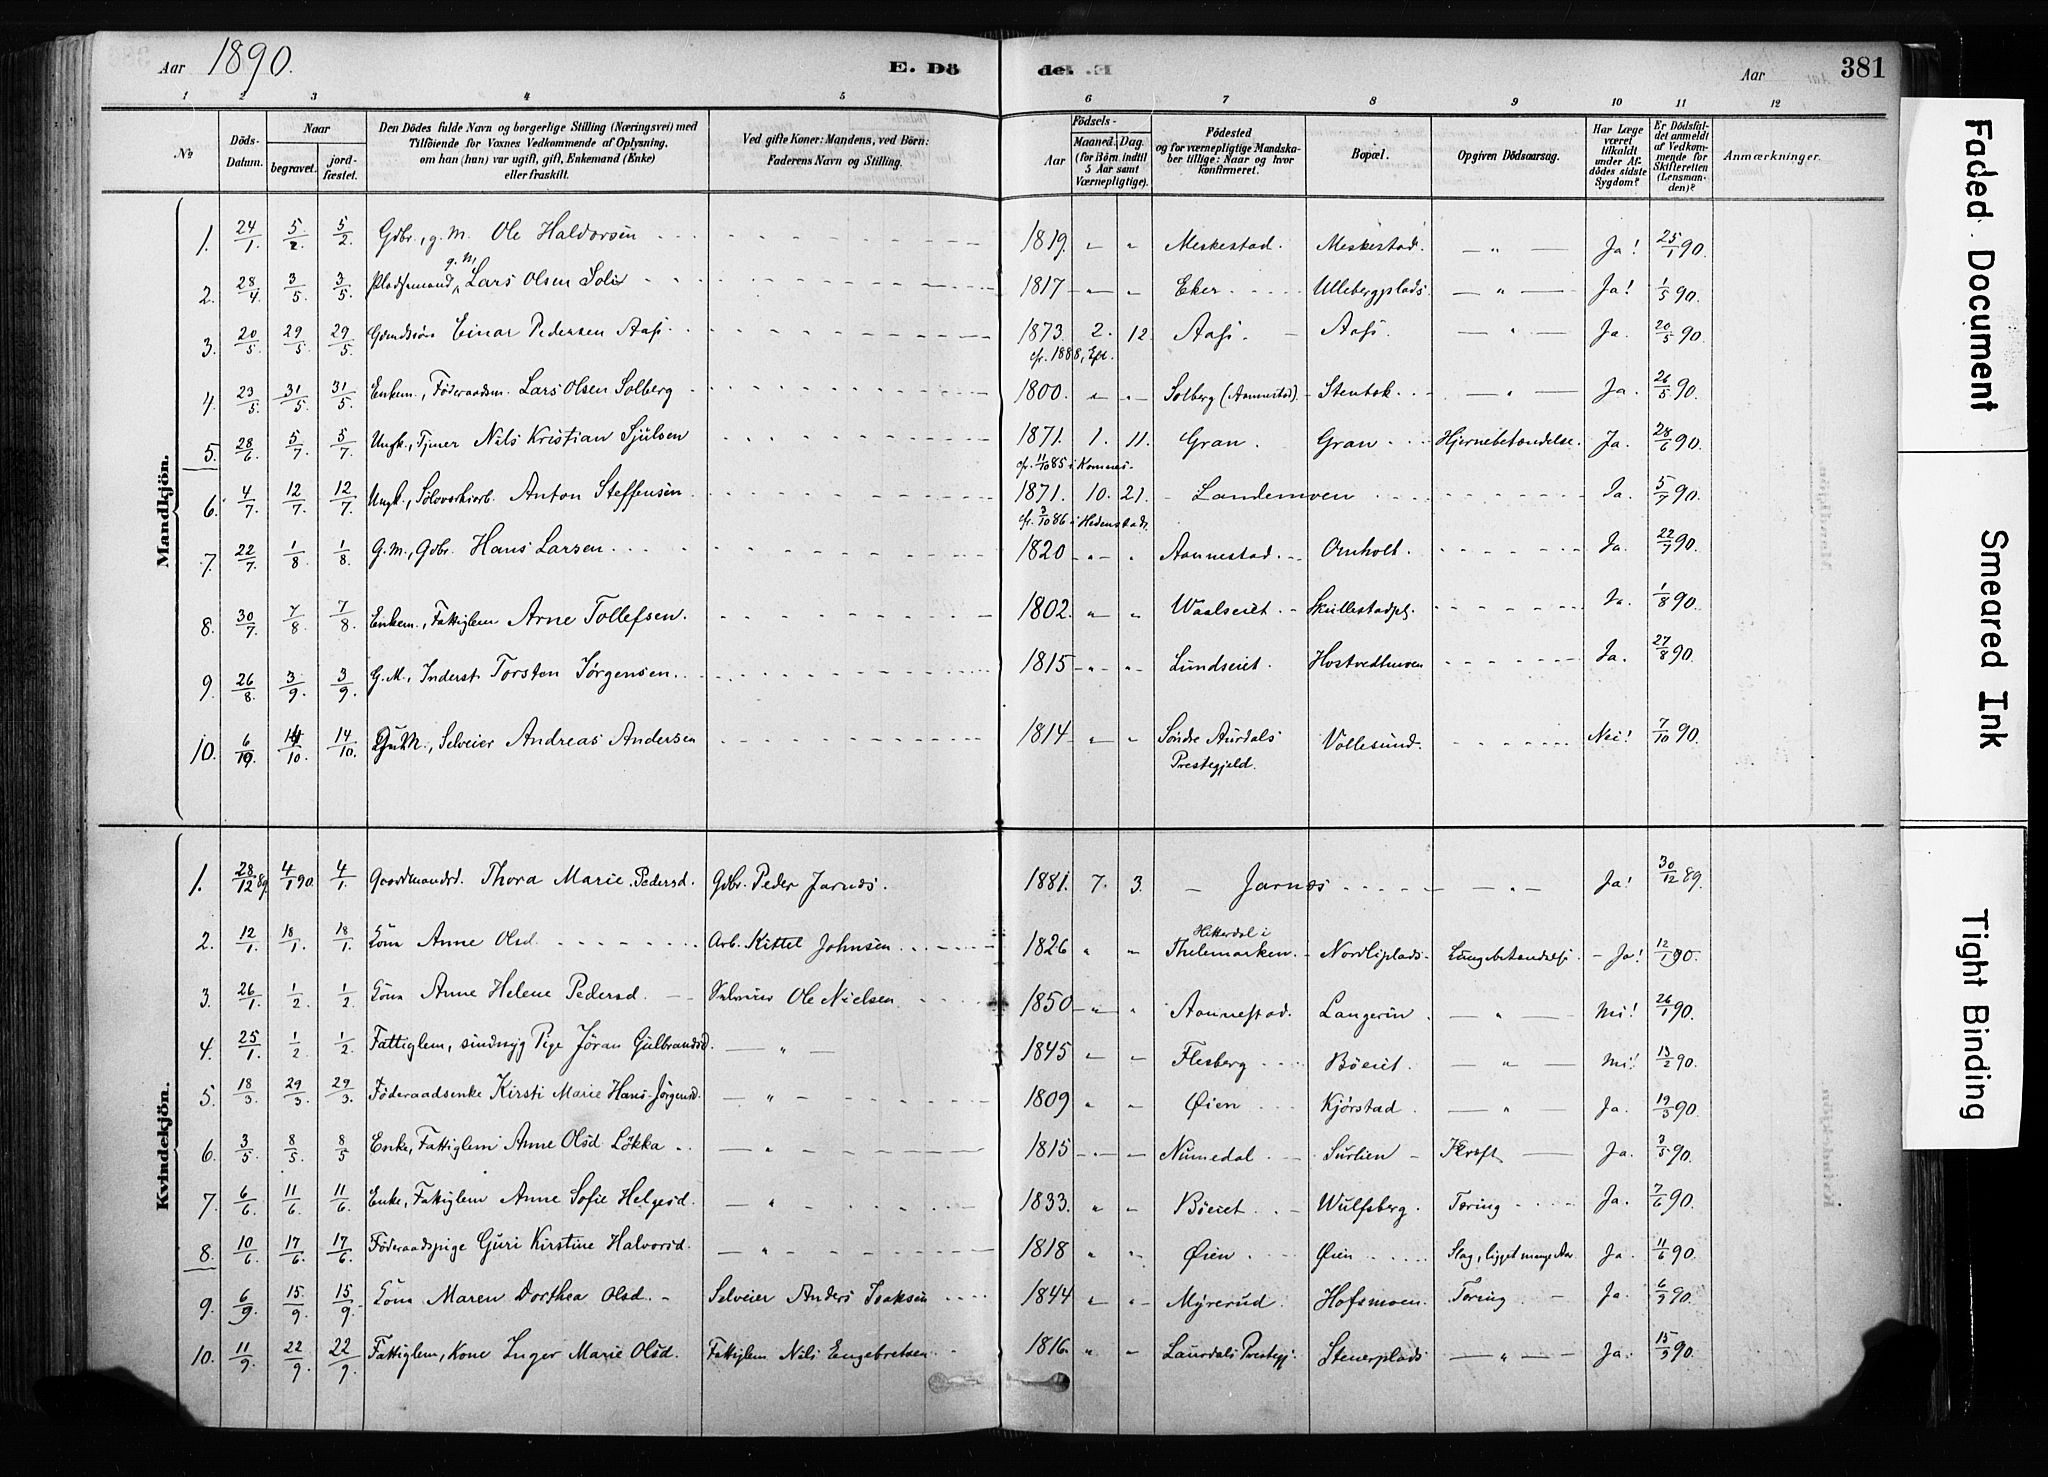 Aar 1890. E. Döde. Aar 381
1 2 3 4 5 6 7 8 9 10 11 12
No Döds-Datum. Naar begravet. jordfæstet. Den Dödes fulde Navn og borgerlige Stilling (Næringsvei) med Tilföiende for Voxnes Vedkommende af Oplysning, om han (hun) var ugift, gift, Enkemand (Enke) eller fraskilt. Ved gifte Koner: Mandens, ved Börn: Faderens Navn og Stilling. Födsels- Aar Maaned. Dag. (for Börn indtil 5 Aar samt Værnepligtige). Födested og for værnepligtige Mandskaber tillige: Naar og hvor konfirmeret. Bopæl. Opgiven Dödsaarsag. Har Læge været tilkaldt under Afdödes sidste Sygdom? Er Dödsfaldet anmeldt af Vedkommende for Skifteretten (Lensmanden)? Anmærkninger.
Mandkjön.
1. 24/1. 5/2. 5/2. Gdbr., g.M. Ole Haldorsen 1819. " " Meskestad. Meskestad. " Ja! 25/1 90.
2. 28/4 3/5. 3/5. Pladsemand, g.M. Lars Olsen Solie 1817 " " Eker Ullebergplads. " Ja! 1/5 90.
3. 20/5 29/5. 29/5. Gdmdssøn Einar Pedersen Aas 1873. 2. 12. Aas. Aas. " Ja. 20/5 90.
cfr. 1888, Eft.
4. 23/5. 31/5. 31/5. Enkem., Føderaadsm. Lars Olsen Solberg 1800. " " Solberg (Aannestad). Stentok. " Ja. 26/5 90.
5. 28/6 5/7. 5/7. Ungk., Tjener Nils Kristian Sjulsen 1871. 1. 11. Gran. Gran Hjernebetændelse. Ja. 28/6 90.
cfr. 11/10 85 i Komnes.
6. 4/7. 12/7. 12/7. Ungk., Sølvverksarb. Anton Steffensen 1871. 10. 21. Landemoen Ja. 5/7 90.
cfr. 3/10 86 i Hedenstad.
7. 22/7. 1/8 1/8. G.M., Gdbr. Hans Larsen 1820 " " Aannestad. Omholt. Ja. 22/7 90.
8. 30/7 7/8. 7/8. Enkem., Fattiglem Arne Tollefsen. 1802. " " Waalseiet. Skullestadpl. Ja. 1/8 90.
9. 26/8. 3/9. 3/9. G.M., Inderst Torsten Jørgensen. 1815 " " Lundseiet. Hostvedtmoen Ja. 27/8 90.
10. 6/10. 14/10. 14/10. G.M., Selveier Andreas Andersen 1814 " " Søndre Aurdals Prestegjeld. Vollesund. Nei! 7/10 90.
Kvindekjön.
1. 28/12 89. 4/1 90. 4/1. Gaardmandsd. Thora Marie Pedersd. Gdbr. Peder Jarnæs. 1881. 7. 3. Jarnæs " Ja! 30/12 89.
2. 12/1. 18/1. 18/1. Kone Anne Olsd. Arb. Kittel Johnsen 1826 " " Hitterdal i Thelemarken. Nordliplads. Lungebetændelse Ja! 12/1 90.
3. 26/1. 1/2. 1/2. Kone Anne Helene Pedersd. Selveier Ole Nielsen 1850 " " Aannestad. Langerin. " Nei! 26/1 90.
4. 25/1. 1/2. 1/2. Fattiglem, sindssyg Pige Jøran Gulbrandsd. " 1845 " " Flesberg Bøeiet. " Nei! 13/2 90.
5. 18/3. 29/3. 29/3. Føderaadsenke Kirsti Marie Hans-Jørgensd. " 1809 " " Øien Kjørstad. " Ja. 19/3 90.
6. 3/5. 8/5. 8/5 Enke, Fattiglem Anne Olsd Løkka " 1815 " " Numedal Surlien Kræft Ja. 3/5 90.
7. 6/6. 11/6. 11/6. Enke, Fattiglem Anne Sofie Helgesd. " 1833. " " Bøeiet. Wulfsberg. Tæring Ja. 7/6 90.
8. 10/6. 17/6. 17/6. Føderaadspige Guri Kirstine Halvorsd. " 1818 " " Øien Øien Slag, ligget mange Aar. Ja. 11/6 90.
9. 6/9. 15/9. 15/9. Kone Maren Dorthea Olsd. Selveier Anders Isaksen 1844 " " Myrerud Hofsmoen. Tæring Ja. 6/9 90.
10. 11/9. 22/9. 22/9. Fattiglem, Kone Inger Marie Olsd. Fattiglem Nils Engebretsen 1816. " " Laurdals Prestegj. Stenerplads " Ja. 15/9 90.
Faded Document
Smeared Ink
Tight Binding